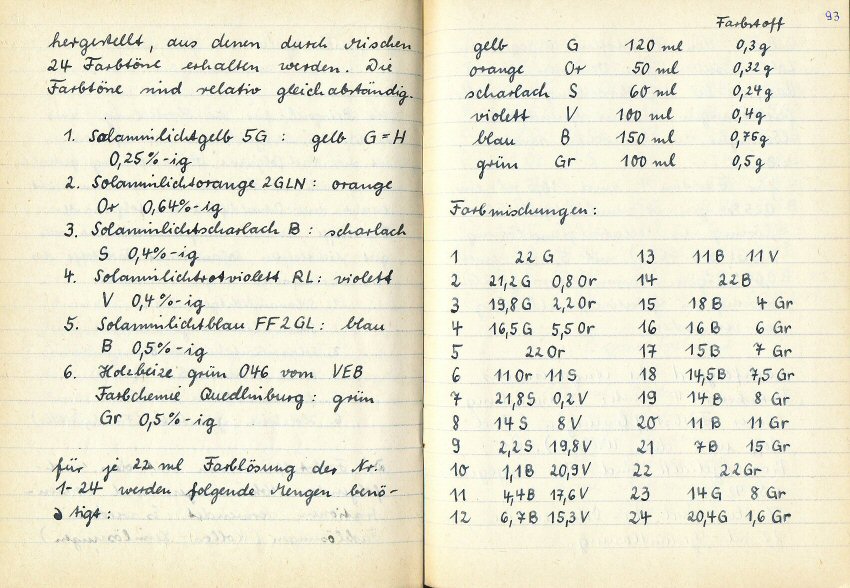 hergestellt, aus denen durch Mischen
24 Farbtöne erhalten werden. Die
Farbtöne sind relativ gleichabständig.
1. Solaminlichtgelb 5G : gelb G = H
0,25%-ig
2. Solaminlichtorange 2GLN : orange
Or 0,64%-ig
3. Solaminlichtscharlach B : scharlach
S 0,4%-ig
4. Solaminlichtrotviolett RL : violett
V 0,4%-ig
5. Solaminlichtblau FF2GL : blau
B 0,5%-ig
6. Holzbeize grün 046 vom VEB
Farbchemie Quedlinburg : grün
Gr 0,5%-ig
für je 22 ml Farblösung der Nr.
1-24 werden folgende Mengen benö-
tigt :
93
Farbstoff
gelb G 120 ml 0,3g
orange Or 50 ml 0,32g
scharlach S 60 ml 0,24g
violett V 100 ml 0,4g
blau B 150 ml 0,75g
grün Gr 100 ml 0,5g
Farbmischungen :
1 22 G 13 11B 11V
2 21,2G 0,8Or 14 22B
3 19,8G 2,2Or 15 18B 4 Gr
4 16,5G 5,5Or 16 16B 6 Gr
5 22Or 17 15B 7 Gr
6 11Or 11S 18 14,5B 7,5 Gr
7 21,8S 0,2V 19 14B 8 Gr
8 14S 8V 20 11B 11 Gr
9 2,2S 19,8V 21 7B 15 Gr
10 1,1B 20,9V 22 22Gr
11 4,4B 17,6V 23 14G 8 Gr
12 6,7B 15,3V 24 20,4G 1,6 Gr